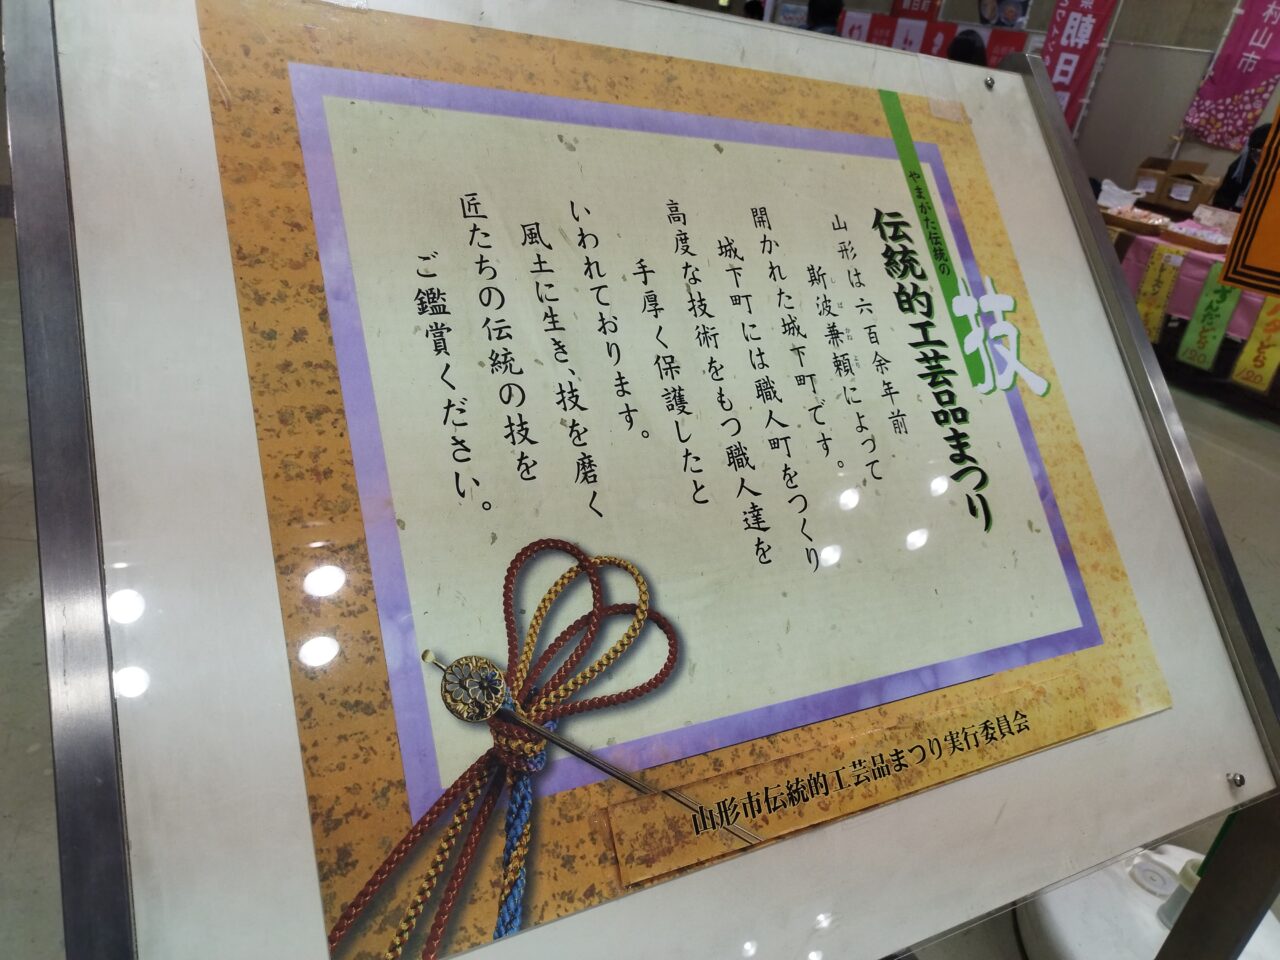 やまがた伝統の
技
伝統的工芸品まつり
山形は六百余年前
斯波兼頼によって
しば かねより
開かれた城下町です。
城下町には職人町をつくり
高度な技術をもつ職人達を
手厚く保護したと
いわれております。
風土に生き、技を磨く
匠たちの伝統の技を
ご鑑賞ください。
山形市伝統的工芸品まつり実行委員会
村山市
朝日